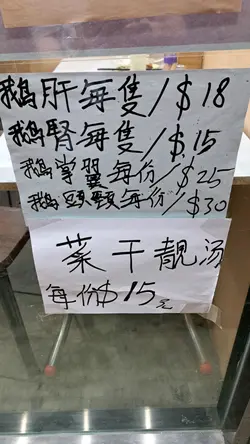 鵝肝每隻/$18
鵝腎每隻/$15
鵝掌翼每份/$25
鵝頭頸每份/$30
菜干靚汤
每份$15元